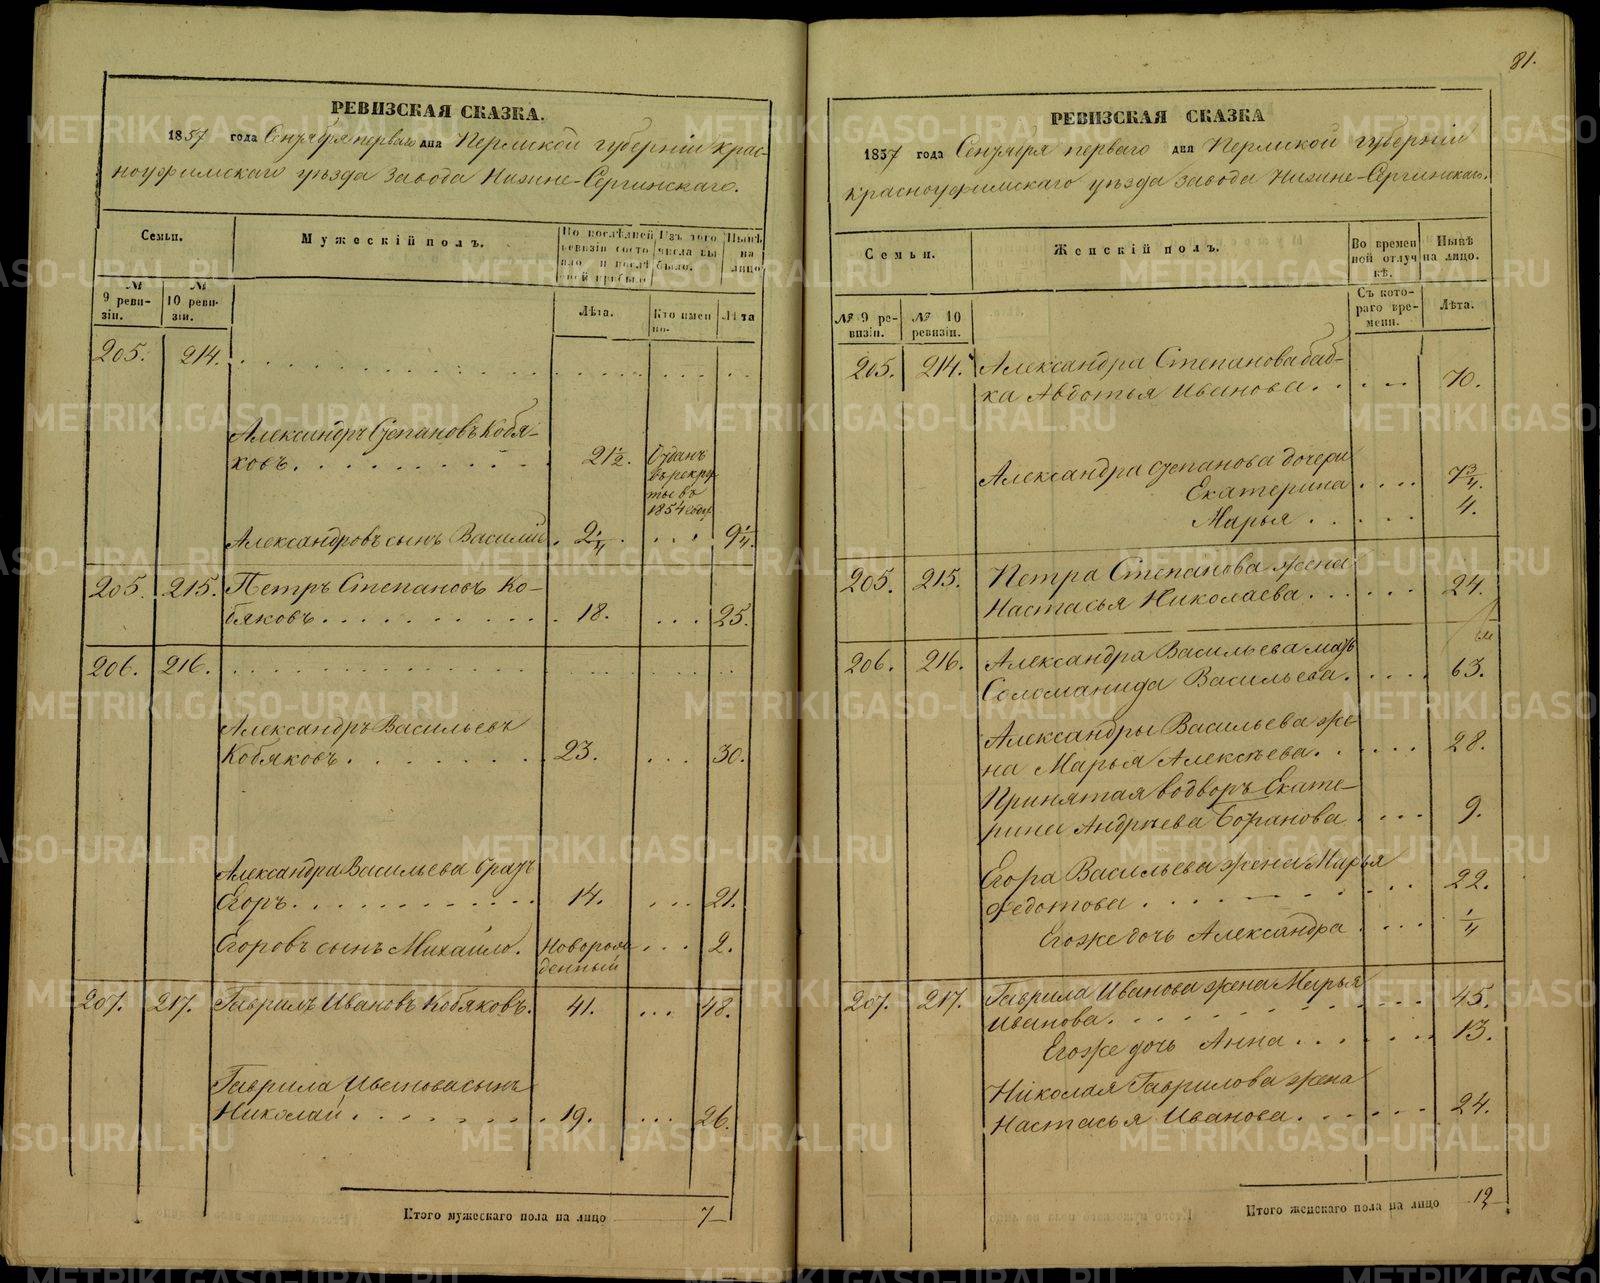 РЕВИЗСКАЯ СКАЗКА.
1857 года Сентября перваго дня Пермской губерніи Крас-
ноуфимскаго уѣзда Завода Нижне-Сергинскаго.
Семьи.
Мужескій полъ.
По послѣдней ревизіи состояло и послѣ оной прибыло
Изъ того числа выбыло.
Нынѣ на лицо
№ 9 ревизіи.
№ 10 ревизіи.
Лѣта.
Кто именно.
Лѣта
205. 214.
Александръ Степановъ Кобя-
ковъ. 21½. Отданъ въ рекруты въ 1854 году
Александровъ сынъ Василій. 2¼. 9¼.
205. 215. Петръ Степановъ Ко-
бяковъ. 18. 25.
206. 216.
Александръ Васильевъ
Кобяковъ. 23. 30.
Александра Васильева братъ
Егоръ. 14. 21.
Егоровъ сынъ Михайло. Новорожденный 2.
207. 217. Гаврилъ Ивановъ Кобяковъ. 41. 48.
Гаврила Иванова сынъ
Николай. 19. 26.
Итого мужескаго пола на лицо 7
81.
РЕВИЗСКАЯ СКАЗКА
1857 года Сентября перваго дня Пермской губерніи
Красноуфимскаго уѣзда Завода Нижне-Сергинскаго.
Семьи.
Женскій полъ.
Во временной отлучкѣ.
Нынѣ на лицо.
№ 9 ревизіи.
№ 10 ревизіи.
Съ котораго времени.
Лѣта.
205. 214. Александра Степанова баб-
ка Авдотья Иванова. 70.
Александра Степанова дочери
Екатерина 7¾.
Марья 4.
205. 215. Петра Степанова жена
Настасья Николаева. 24.
206. 216. Александра Васильева мать
Соломанида Васильева. 63.
Александры Васильева же-
на Марья Алексѣева. 28.
Принятая во дворъ Екате-
рина Андреева Боранова 9.
Егора Васильева жена Марья
Федотова 22.
Его же дочь Александра ¼
207. 217. Гаврила Иванова жена Марья
Иванова. 45.
Его же дочь Анна 13.
Николая Гаврилова жена
Настасья Иванова. 24.
Итого женскаго пола на лицо 12
METRIKI.GASO-URAL.RU